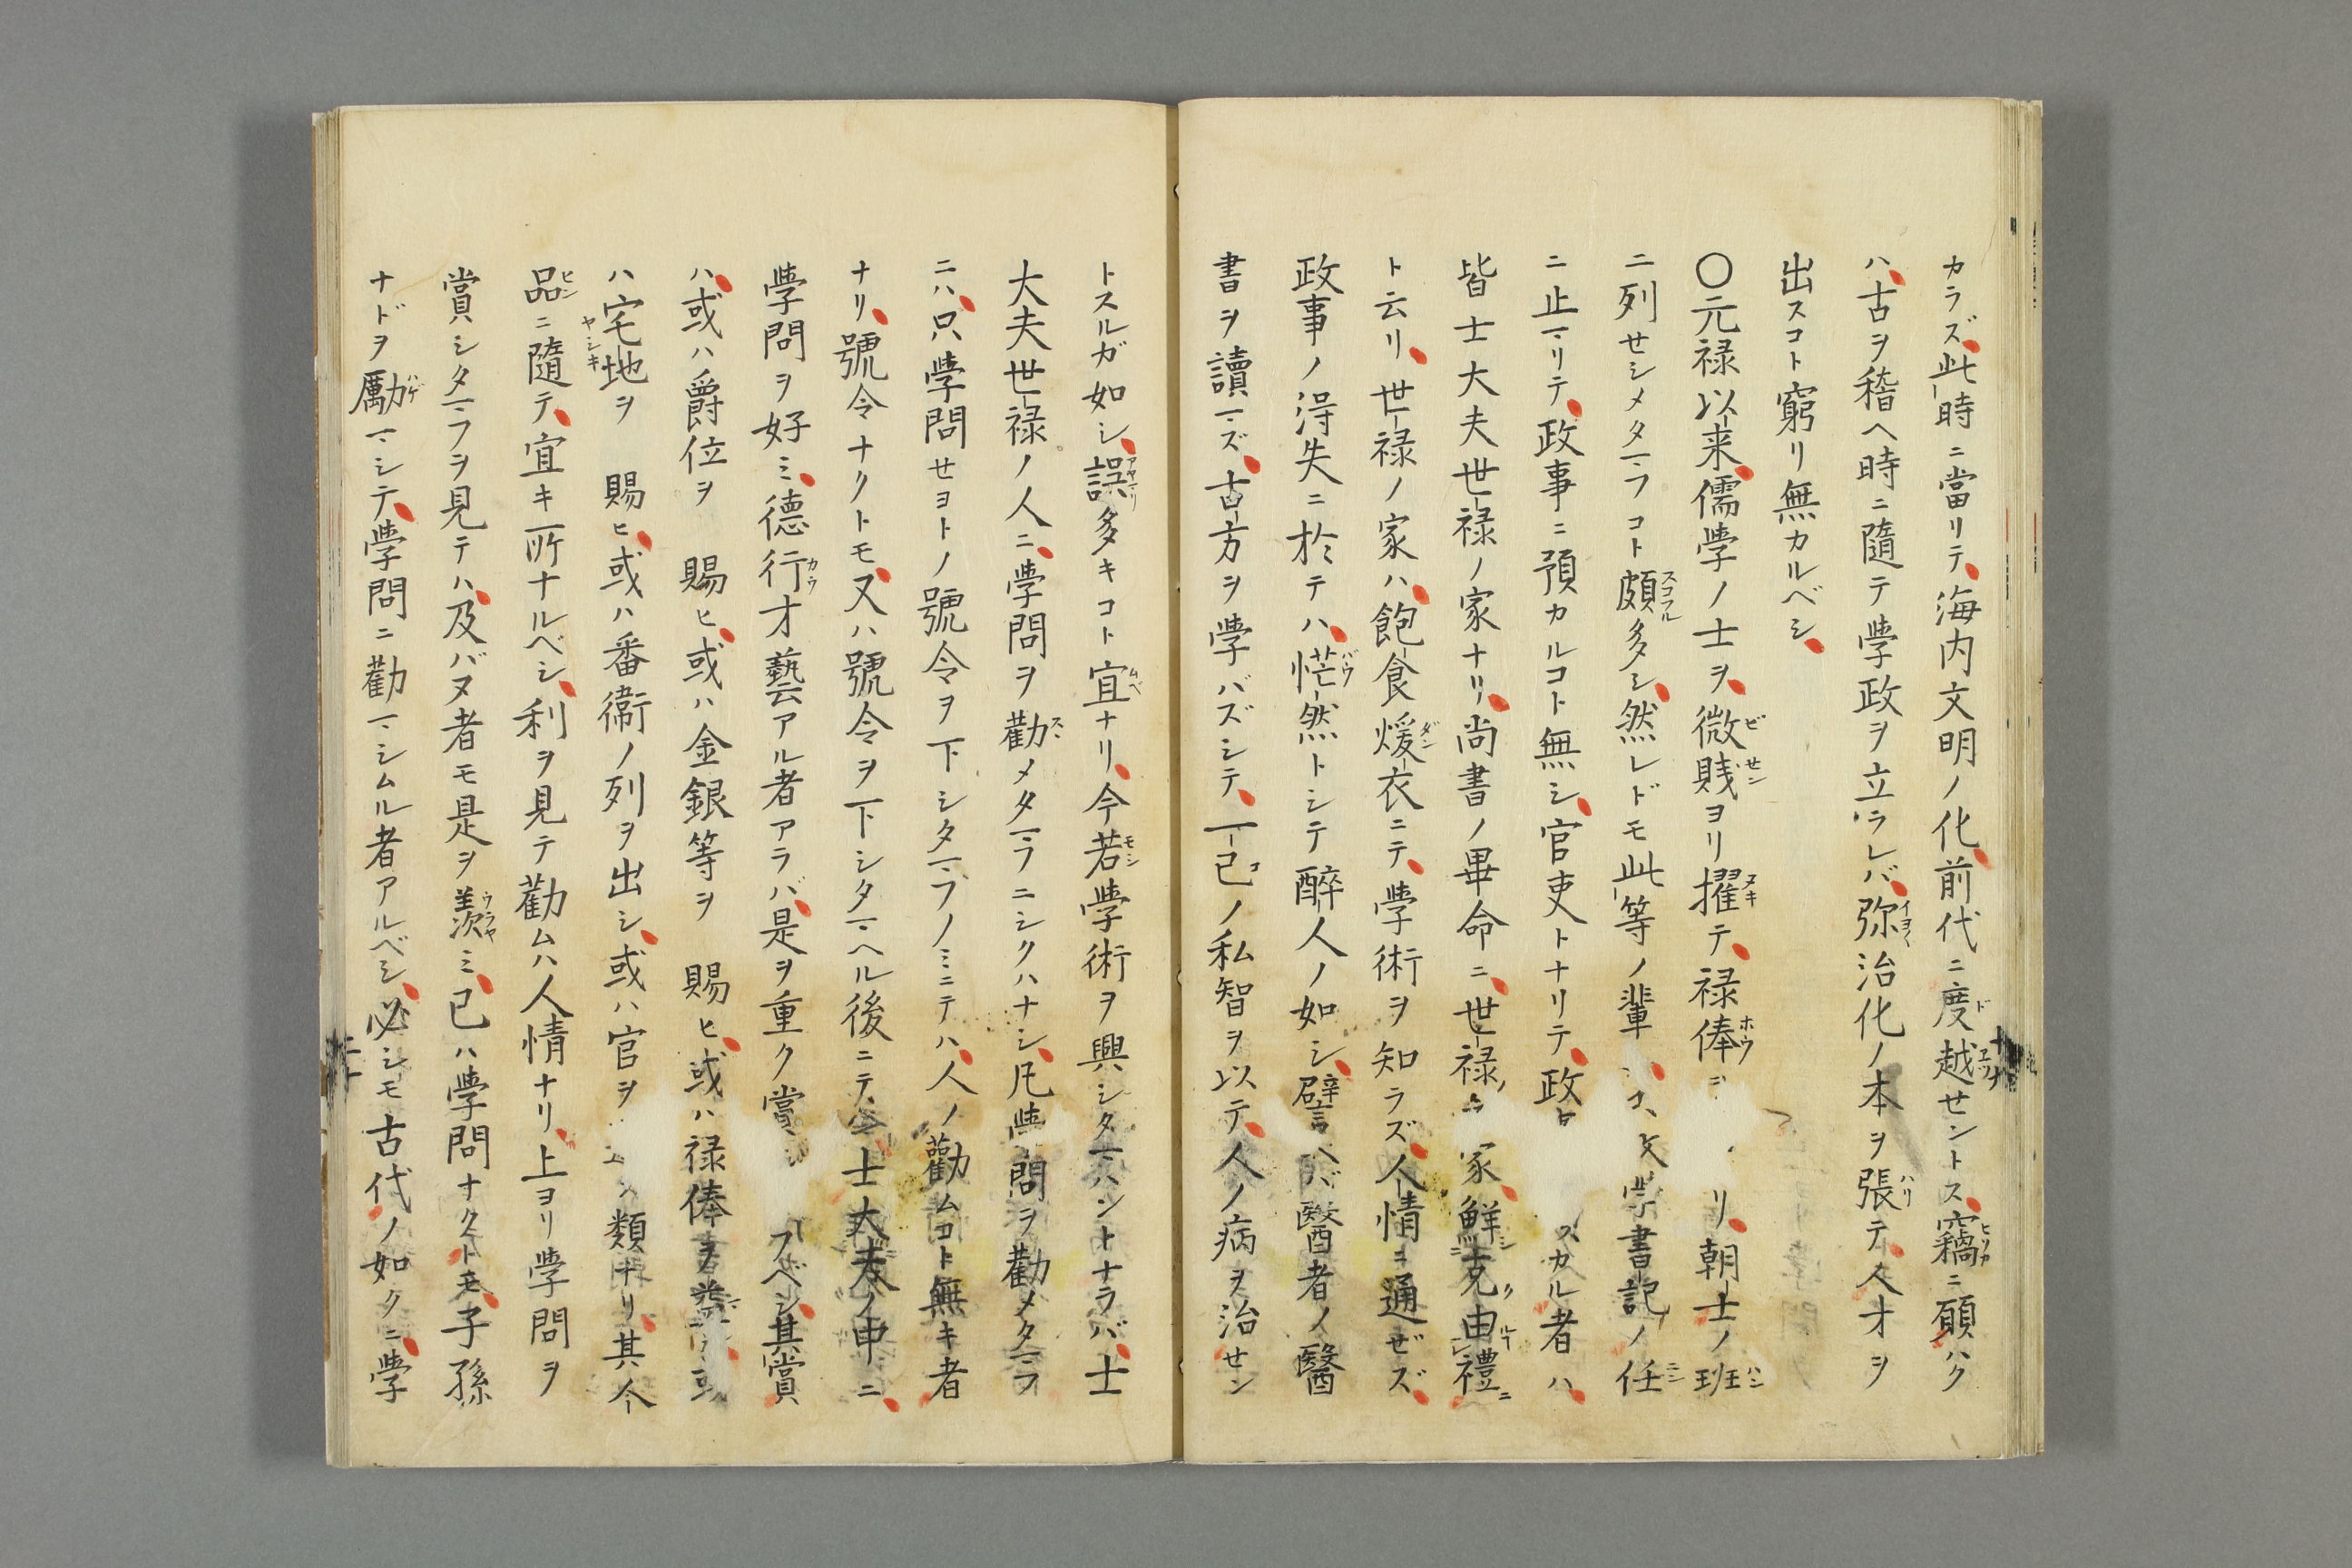 カラズ、此時ニ當リテ、海内文明ノ化、前代ニ度越セントス、竊ニ願ハク
ハ、古ヲ稽ヘ時ニ隨テ學政ヲ立ラレバ、弥治化ノ本ヲ張テ、人才ヲ
出スコト窮リ無カルベシ、
〇元禄以来、儒學ノ士ヲ、微賎ヨリ擢テ、禄俸 リ、朝士ノ班
ニ列セシメタマフコト頗多シ、然レドモ此等ノ輩 文 書記ノ任
ニ止マリテ、政事ニ預カルコト無シ、官吏トナリテ、政 カル者ハ、
皆士大夫世禄ノ家ナリ、尚書ノ畢命ニ、世禄ノ 家、鮮克由禮ニ
ト云リ、世禄ノ家ハ、飽食煖衣ニテ、學術ヲ知ラズ、人情ニ通ゼズ、
政事ノ淂失ニ於テハ、恾然トシテ醉人ノ如シ、譬ヘバ醫者ノ醫
書ヲ讀マズ、古方ヲ學バズシテ、一己ノ私智ヲ以テ、人ノ病ヲ治セン
トスルガ如シ、誤多キコト宜ナリ、今若學術ヲ興シタマハントナラバ、士
大夫世禄ノ人ニ、學問ヲ勸メタマフニシクハナシ、凡學問ヲ勸メタマフ
ニハ、只學問セヨトノ號令ヲ下シタマフノミニテハ、人ノ勸ムコト無キ者
ナリ、號令ナクトモ、又ハ號令ヲ下シタマヘル後ニテ、 士大夫ノ中ニ、
學問ヲ好ミ、德行才藝アル者アラバ、是ヲ重ク賞シ フベシ、其賞
ハ、或ハ爵位ヲ 賜ヒ、或ハ金銀等ヲ 賜ヒ、或ハ禄俸ヲ 或
ハ宅地ヲ 賜ヒ、或ハ番衞ノ列ヲ出シ、或ハ官ヲ 類ナリ、其人
品ニ隨テ、宜キ所ナルベシ、利ヲ見テ勸ムハ人情ナリ、上ヨリ學問ヲ
賞シタマフヲ見テハ、及バヌ者モ是ヲ羨ミ、己ハ學問ナクトモ、子孫
ナドヲ勵マシテ、學問ニ勸マシムル者アルベシ、必シモ古代ノ如クニ、學